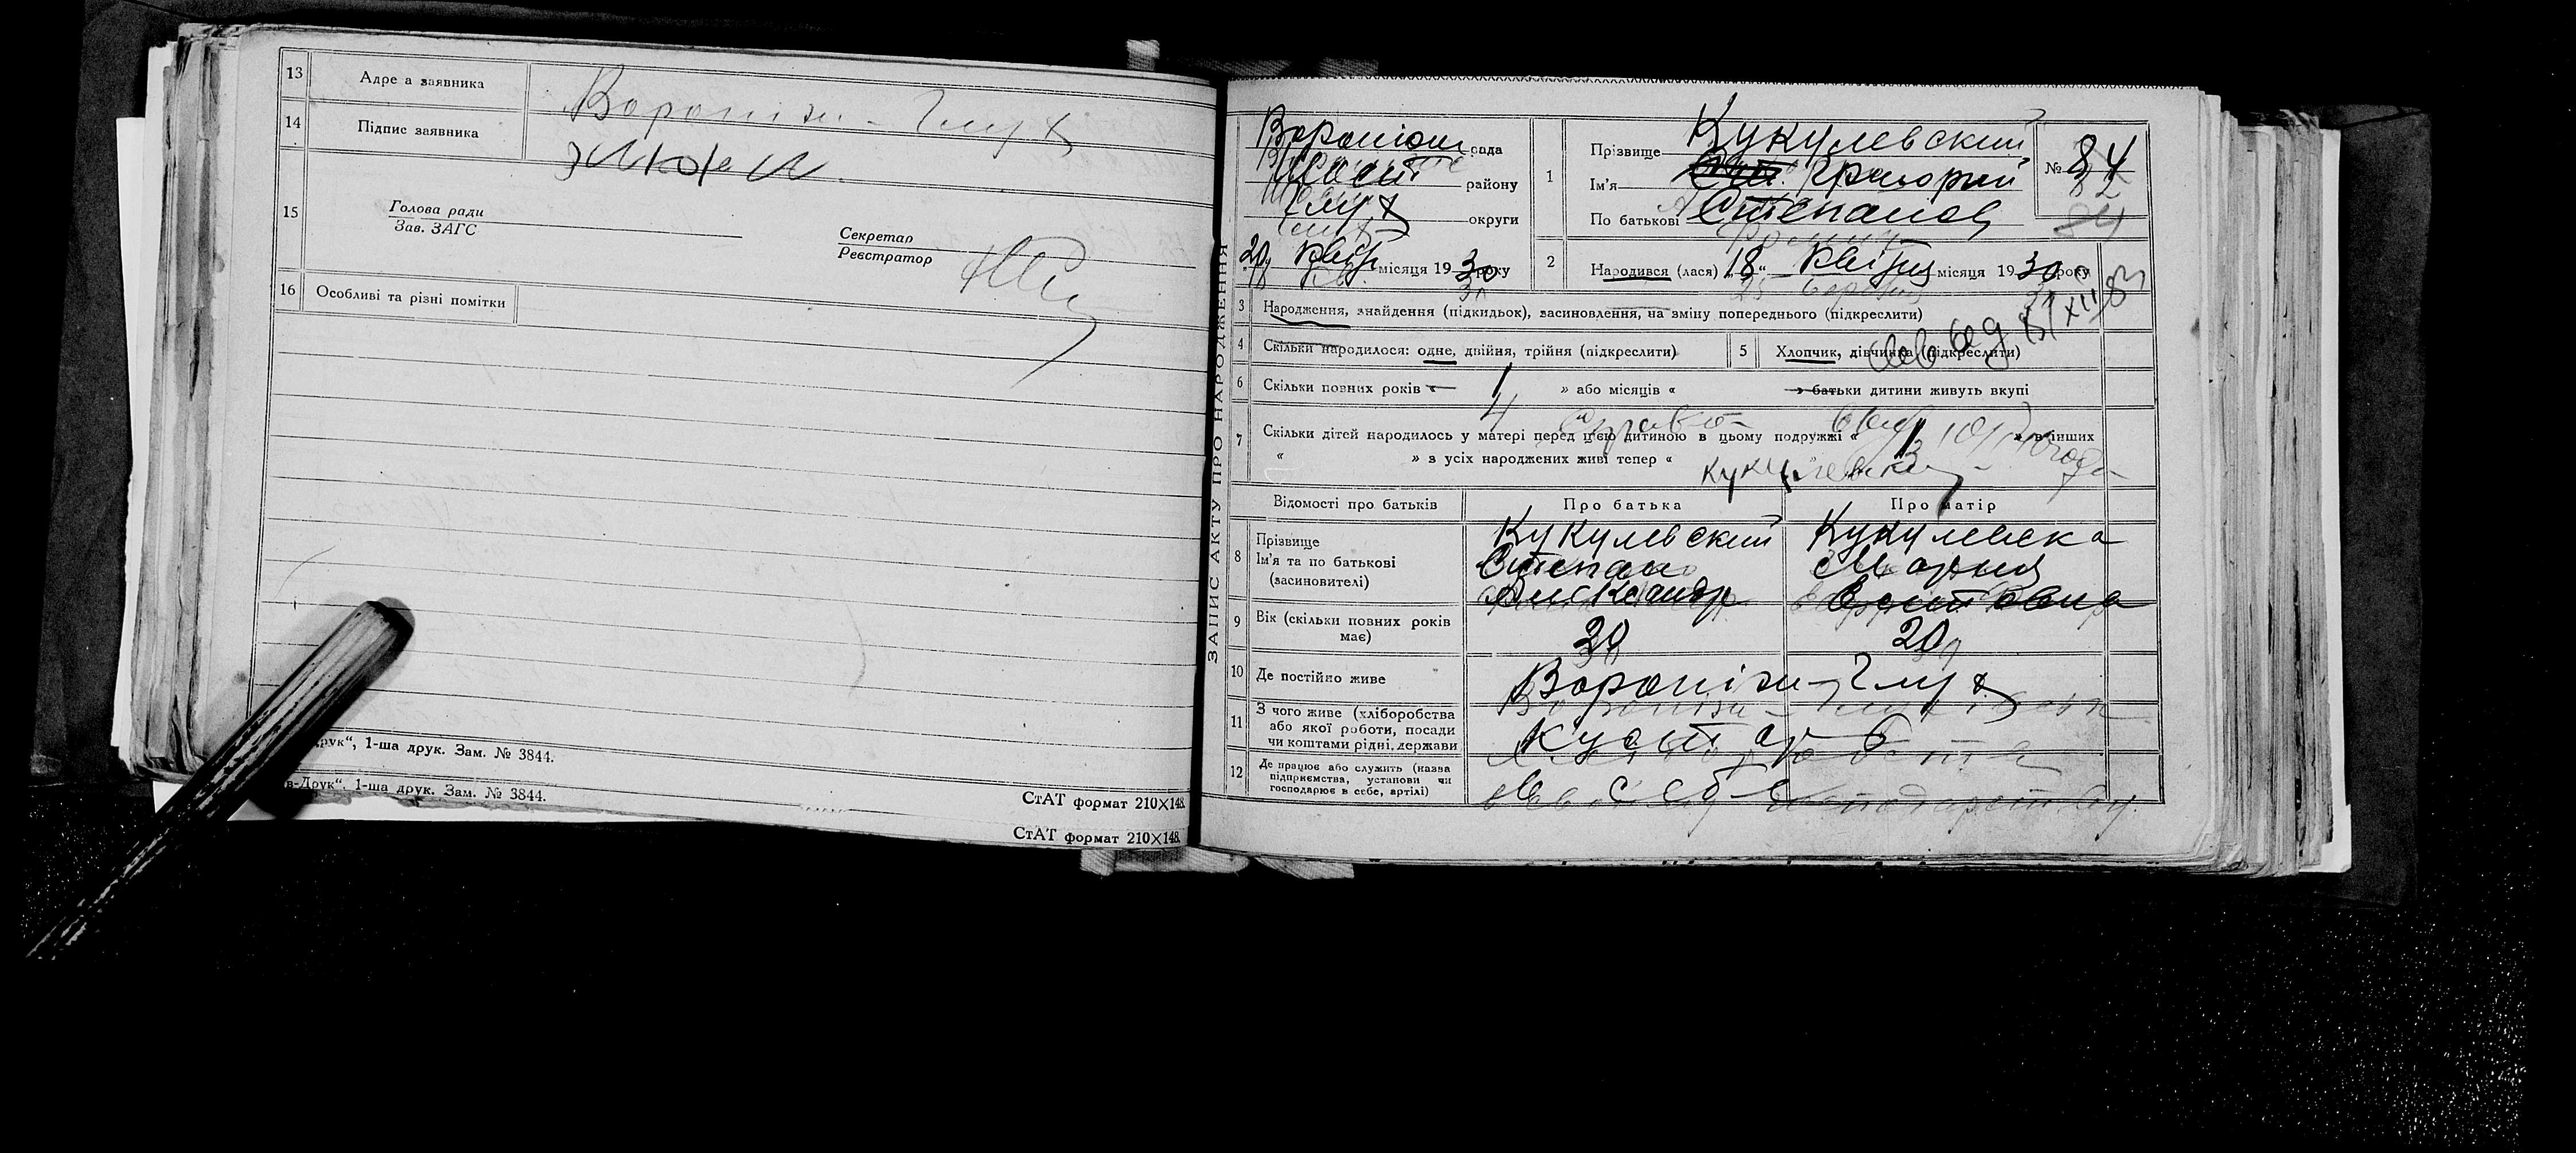 13 Адре а заявника
Вороніж - Глух
14 Підпис заявника
15
Голова ради
Зав. ЗАГС
Секретар
Реєстратор
16 Особливі та різні помітки
друк“, 1-ша друк. Зам. № 3844.
в-Друк“, 1-ша друк. Зам. № 3844.
СтАТ формат 210×148.
СтАТ формат 210×148.
ЗАПИС АКТУ ПРО НАРОДЖЕННЯ
Вороніж рада
району
Глух округи
20 квіт місяця 1930 року
1 Прізвище Кукулевский
Ім'я Григорий
По батькові Степанов
№ 84
2 Народився (лася) „18“ квітня місяця 1930 року
3 Народження, знайдення (підкидьок), засиновлення, на зміну попереднього (підкреслити)
4 Скільки народилося: одне, двійня, трійня (підкреслити)
5 Хлопчик, дівчинка (підкреслити)
6 Скільки повних років « 1 » або місяців « » батьки дитини живуть вкупі
7 Скільки дітей народилось у матері перед цією дитиною в цьому подружжі « » в інших
« » з усіх народжених живі тепер «
Відомості про батьків Про батька Про матір
8 Прізвище Кукулевский Кукулевска
Ім'я та по батькові Степан Мария
(засиновителі) Александр
9 Вік (скільки повних років має) 20 20
10 Де постійно живе Вороніж - Глух
11 З чого живе (хліборобства
або якої роботи, посади
чи коштами рідні, держави
Кустар
12 Де працює або служить (назва
підприємства, установи чи
господарює в себе, артілі)